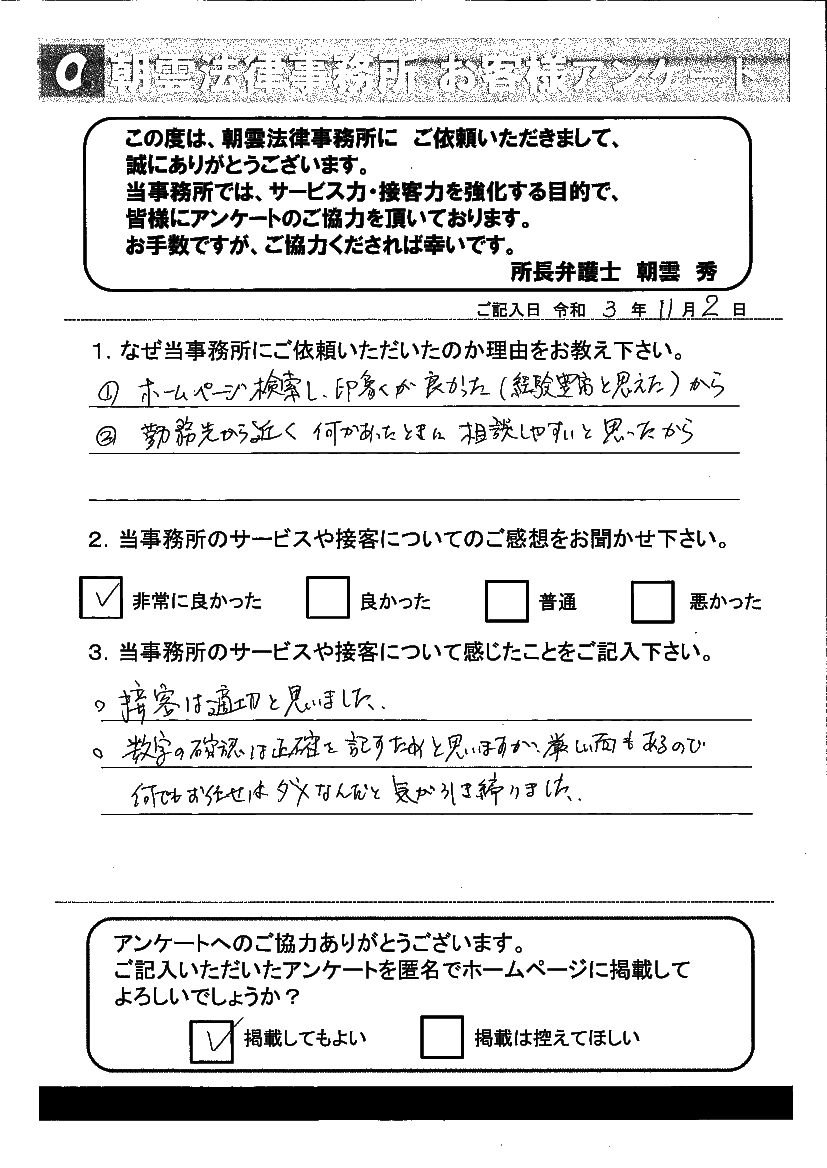 Q. 朝雲法律事務所 お客様アンケート
この度は、朝雲法律事務所に ご依頼いただきまして、
誠にありがとうございます。
当事務所では、サービス力・接客力を強化する目的で、
皆様にアンケートのご協力を頂いております。
お手数ですが、ご協力くだされば幸いです。
所長弁護士 朝雲 秀
ご記入日 令和 3 年 11 月 2 日
1. なぜ当事務所にご依頼いただいたのか理由をお教え下さい。
① ホームページ検索し、印象が良かった(経験豊富と思えた)から
② 勤務先から近く 何かあったときに 相談しやすいと思ったから
2. 当事務所のサービスや接客についてのご感想をお聞かせ下さい。
☑ 非常に良かった □ 良かった □ 普通 □ 悪かった
3. 当事務所のサービスや接客について感じたことをご記入下さい。
○ 接客は適切と思いました。
○ 数字の確認は正確を記すためと思いますが、厳しい面もあるので
何でもお任せはダメなんだと気が引き締りました。
アンケートへのご協力ありがとうございます。
ご記入いただいたアンケートを匿名でホームページに掲載して
よろしいでしょうか?
☑ 掲載してもよい □ 掲載は控えてほしい